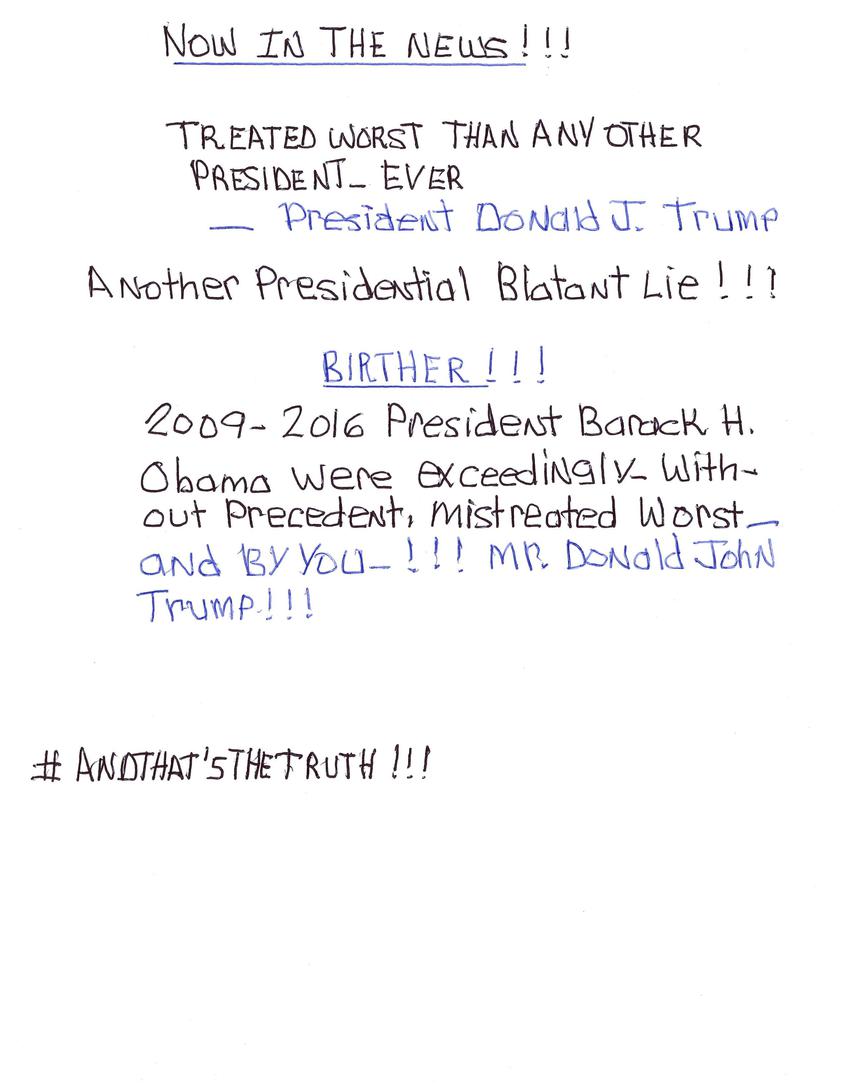 NOW IN THE NEWS!!!
TREATED WORST THAN ANY OTHER
PRESIDENT_ EVER
— President Donald J. Trump
Another Presidential Blatant Lie!!!
BIRTHER!!!
2009-2016 President Barack H.
Obama were exceedingly_ with-
out Precedent, mistreated worst_
and BY YOU_!!! MR. Donald John
Trump!!!
# ANDTHAT'STHETRUTH!!!